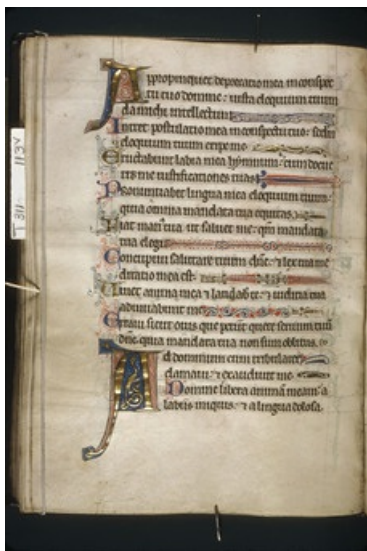 Appropinquet deprecatio mea in conspec
tu tuo domine: iuxta eloquium tuum
da michi intellectum
Intret postulatio mea in conspectu tuo: scdm
eloquium tuum eripe me
Eructabunt labia mea hymnum: cum docue
ris me iustificationes tuas
Pronuntiabit lingua mea eloquium tuum:
quia omnia mandata tua equitas
Fiat man⁹ tua ut saluet me: qm̄ mandata
tua elegi
Concupiui salutare tuum dn̄e: ⁊ lex tua me
ditatio mea est
Uiuet anima mea ⁊ laudabit te: ⁊ iudicia tua
adiuuabunt me
Erraui sicut ouis que periit quere seruum tuū
dn̄e quia mandata tua non sum oblitus
Ad dominum cum tribularer
clamaui: ⁊ exaudiuit me
Domine libera animā meam: a
labiis iniquis: ⁊ a lingua dolosa.
T 311 113V